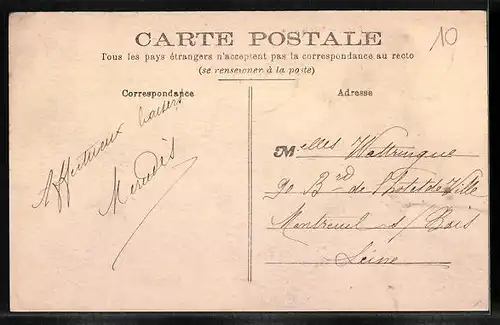 CARTE POSTALE
10
Tous les pays étrangers n'acceptent pas la correspondance au recto
(se renseigner à la poste)
Correspondance
Adresse
Affectueux baisers
Mercédès
Melles Wattringue
90 Brd de l'hotel de Ville
Montreuil s/ Bois
Seine